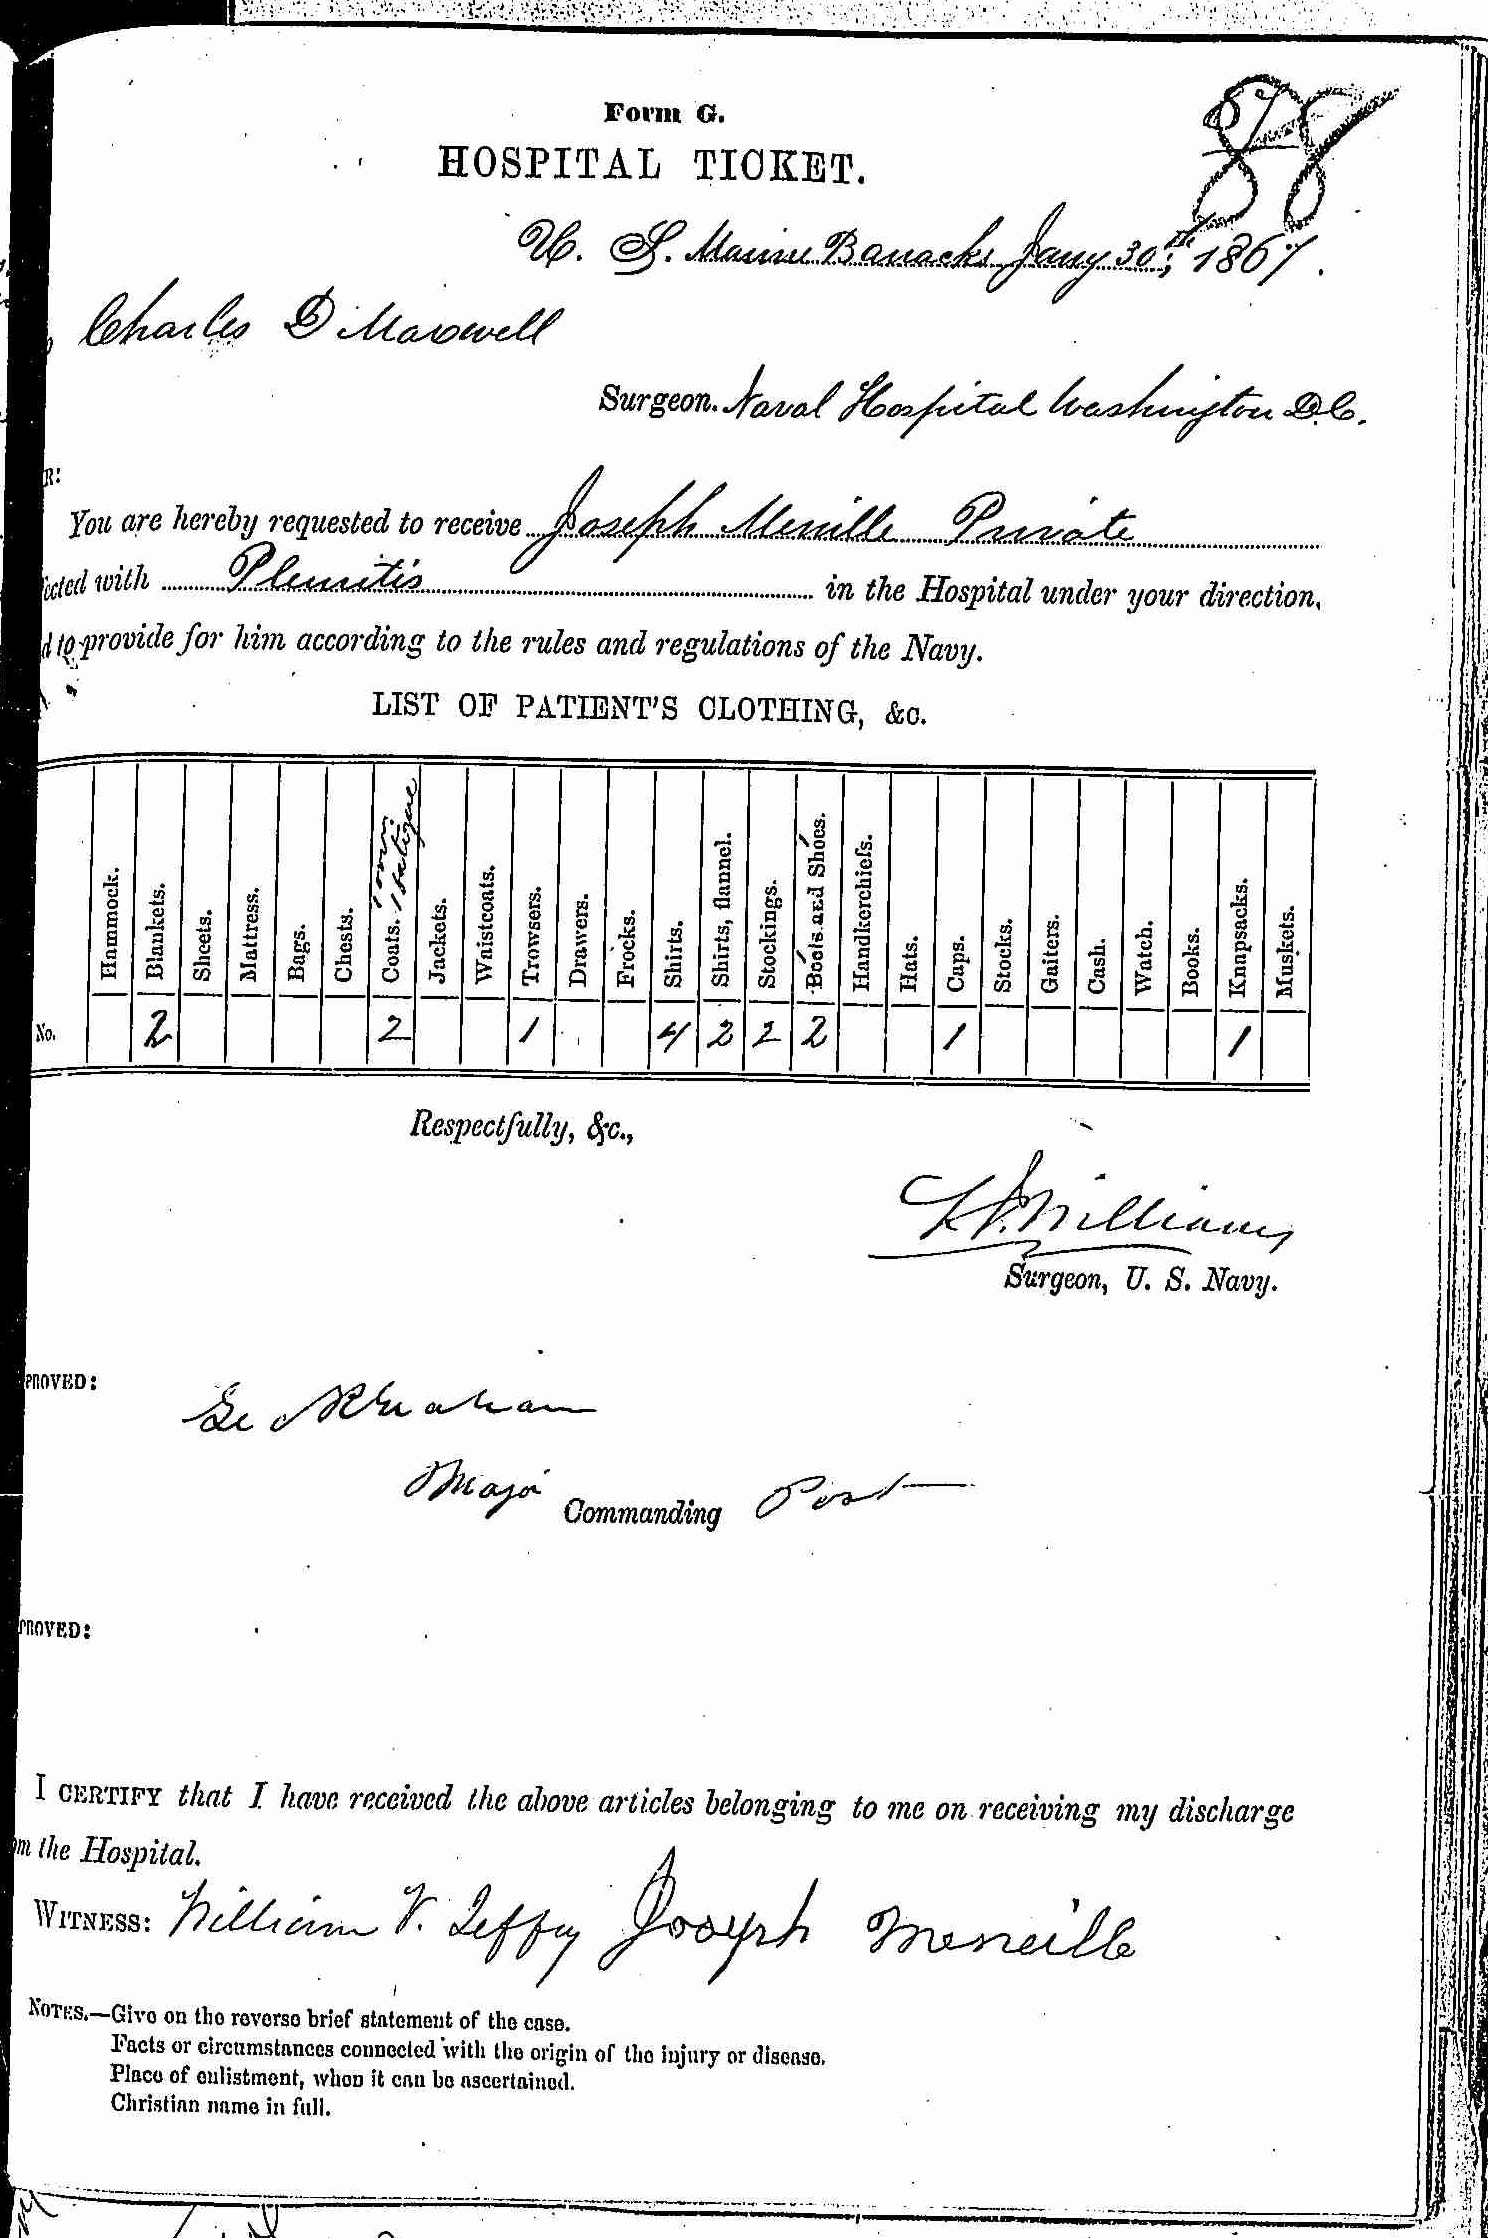 Form G.
88
HOSPITAL TICKET.
U. S. Marine Barracks Jany 30th, 1867.
Charles D Maxwell
Surgeon. Naval Hospital Washington D.C.
R:
You are hereby requested to receive Joseph Meniille Private
ected with Pleuritis in the Hospital under your direction,
d to provide for him according to the rules and regulations of the Navy.
LIST OF PATIENT'S CLOTHING, &c.
Hammock. Blankets. Sheets. Mattress. Bags. Chests. Coats. 1 fatigue Jackets. Waistcoats. Trowsers. Drawers. Frocks. Shirts. Shirts, flannel. Stockings. Boots and Shoes. Handkerchiefs. Hats. Caps. Stocks. Gaiters. Cash. Watch. Books. Knapsacks. Muskets.
No. 2 2 1 4 2 2 2 1 1
Respectfully, &c.,
Williams
Surgeon, U. S. Navy.
PROVED:
Geo R Graham
Major Commanding Post
PROVED:
I CERTIFY that I have received the above articles belonging to me on receiving my discharge
om the Hospital.
WITNESS: William V. Joseph Meneille
NOTES.—Give on the reverse brief statement of the case.
Facts or circumstances connected with the origin of the injury or disease.
Place of enlistment, when it can be ascertained.
Christian name in full.